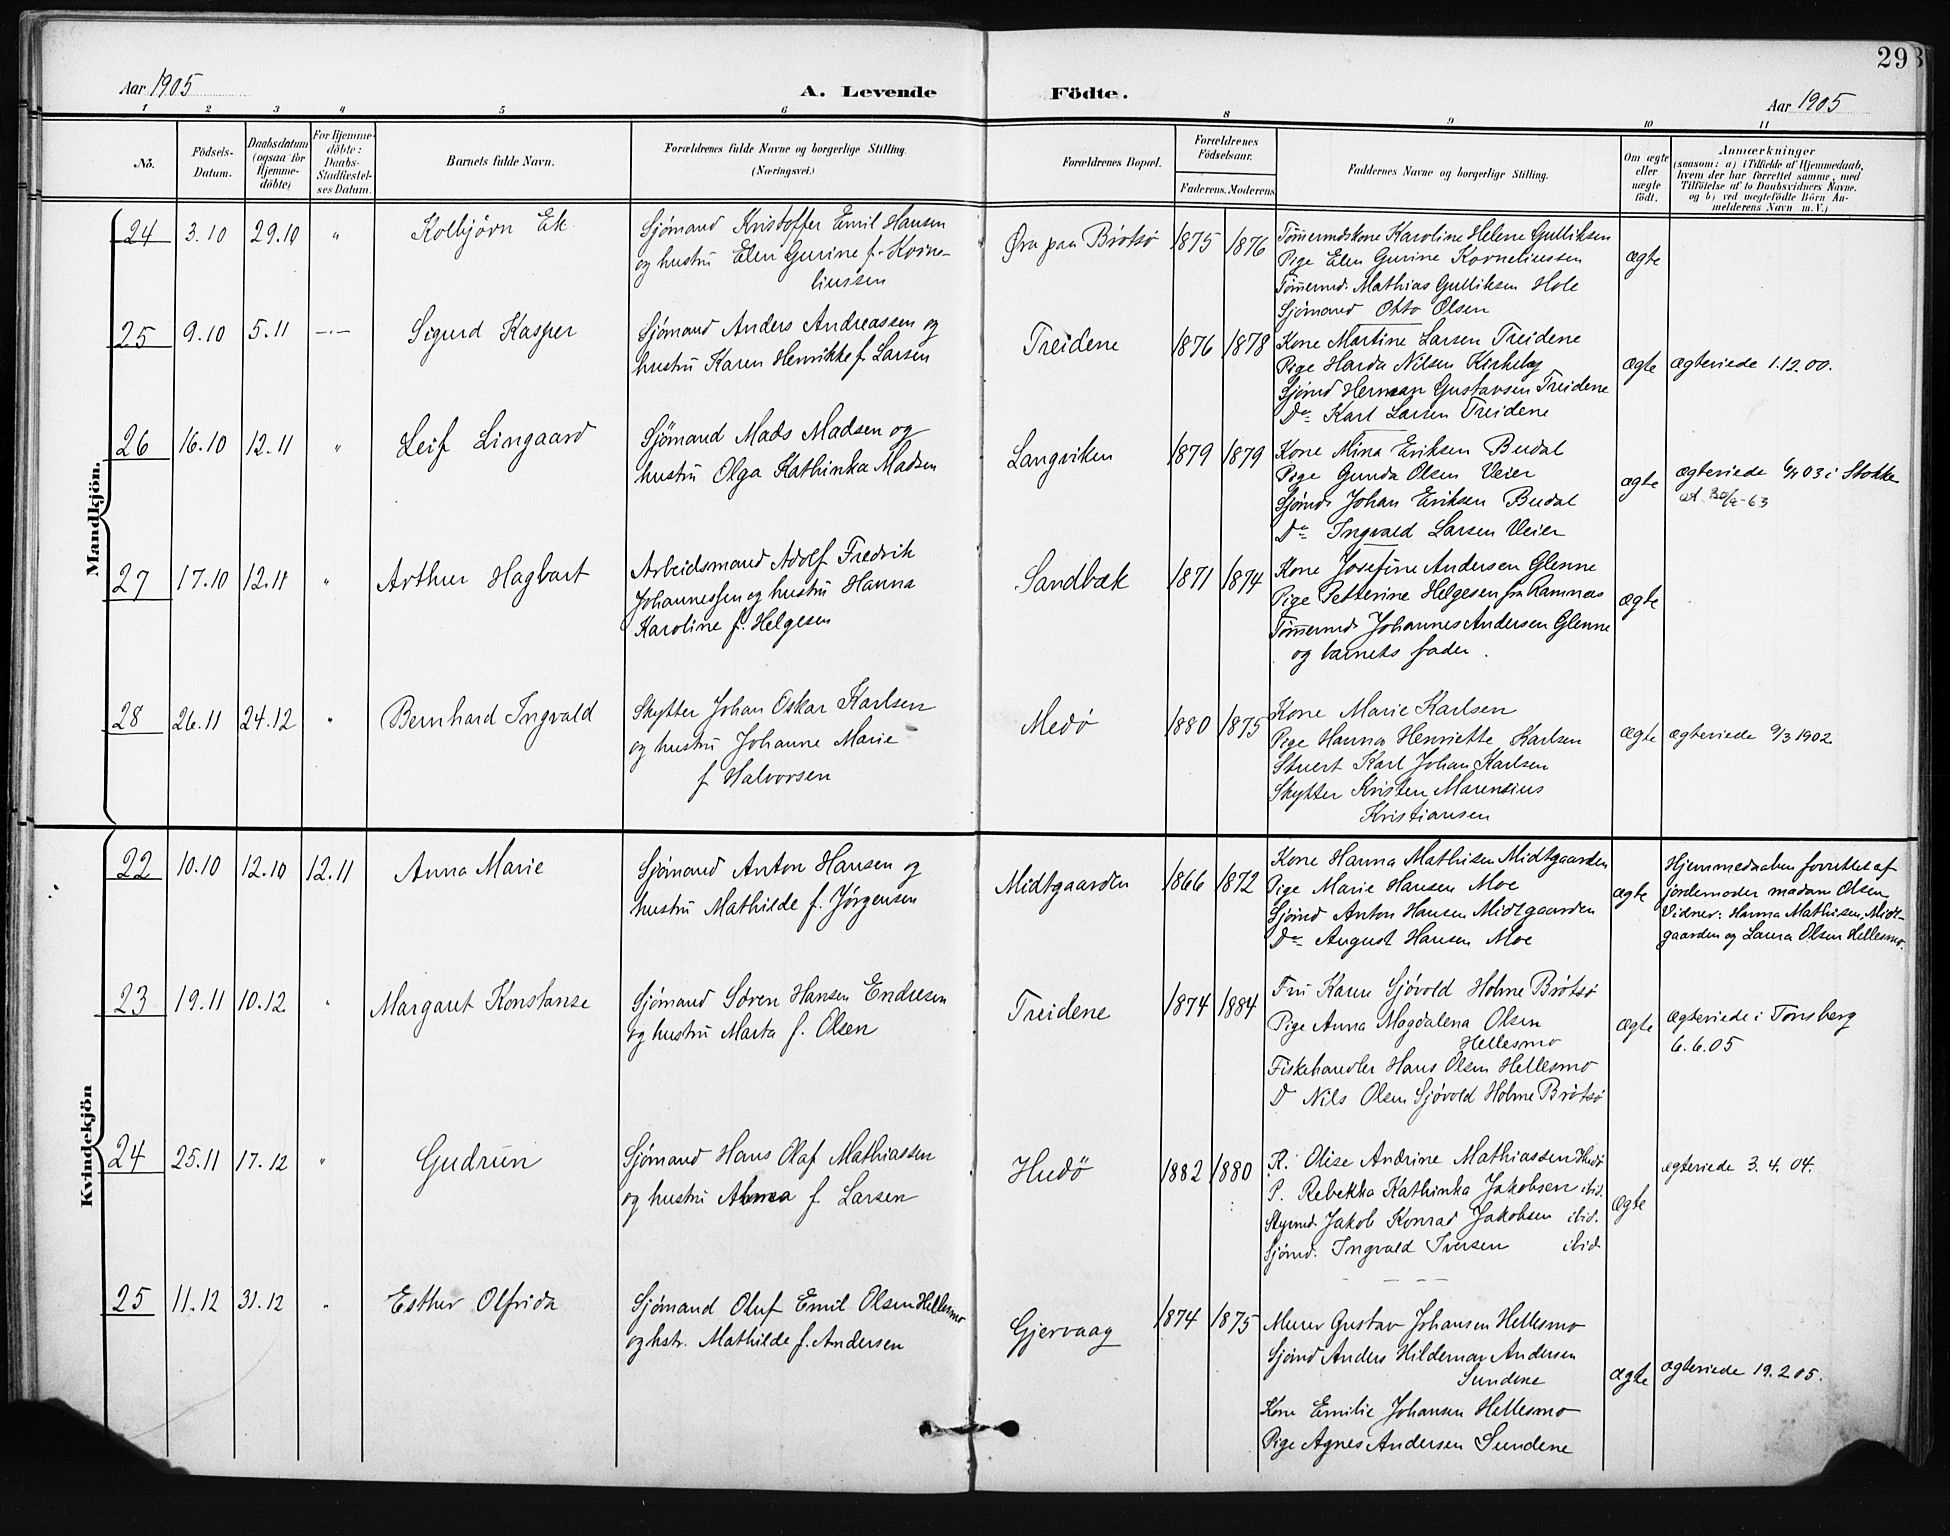 293
Aar 1905
A. Levende Födte.
Aar 1905
1 2 3 4 5 6 8 9 10 11
No.
Födsels-Datum.
Daabsdatum (ogsaa for Hjemme-döbte)
For Hjemme-döbte: Daabs-Stadfæstel-ses Datum.
Barnets fulde Navn.
Forældrenes fulde Navne og borgerlige Stilling.
(Næringsvei.)
Forældrenes Bopæl.
Forældrenes Födselsaar.
Faderens. Moderens.
Faddernes Navne og borgerlige Stilling.
Om ægte eller uægte födt.
Anmærkninger
(saasom: a) i Tilfælde af Hjemmedaab,
hvem der har forrettet samme, med
Tilföielse af to Daabsvidners Navne.
og b) ved uægtefödte Börn An-
melderens Navn m. V.)
Mandkjön.
24 3.10 29.10 " Kolbjörn Ek.
Sjömand Kristoffer Emil Hansen
og hustru Elen Gurine f. Korne-
liussen
Øra paa Brötsö 1875 1876
Tömmermdskone Karoline Helene Gulliksen
Pige Elen Gurine Korneliussen
Tömmermd. Mathias Gulliksen Hole
Sjömand Otto Olsen
ægte
25 9.10 5.11 -"- Sigurd Kasper
Sjömand Anders Andreassen og
hustru Karen Henrikke f. Larsen
Treidene 1876 1878
Kone Martine Larsen Treidene
Pige Harda Nilsen Kirkeby
Sjömd Herman Gustavsen Treidene
Do Karl Larsen Treidene
ægte ægteviede 1.12.00.
26 16.10 12.11 " Leif Lingaard
Sjömand Mads Madsen og
hustru Olga Kathinka Madsen
Langviken 1879 1879
Kone Mina Eriksen Budal
Pige Gunda Olsen Veier
Sjömd. Johan Eriksen Budal
Do Ingvald Larsen Veier
ægte ægteviede 03 i Stokke
27 17.10 12.11 " Arthur Hagbart
Arbeidsmand Adolf Fredrik
Johannessen og hustru Hanna
Karoline f. Helgesen
Sandbæk 1871 1874
Kone Josefine Andersen Glenne
Pige Petterine Helgesen fra Ramnæs
Tömmermd. Johannes Andersen Glenne
og barnets fader.
ægte
28 26.11 24.12 " Bernhard Ingvald
Skytter Johan Oskar Karlsen
og hustru Johanne Marie
f Halvorsen
Medö 1880 1875
Kone Marie Karlsen
Pige Hanna Henriette Karlsen
Stuert Karl Johan Karlsen
Skytter Kristen Marensius
Kristiansen
ægte ægteviede 9/3 1902
Kvindekjön
22 10.10 12.10 12.11 Anna Marie
Sjömand Anton Hansen og
hustru Mathilde f. Jörgensen
Midtgaarden 1866 1872
Kone Hanna Mathisen Midtgaarden
Pige Marie Hansen Moe
Sjömd Anton Hansen Midtgaarden
Do August Hansen Moe
ægte
Hjemmedaaben forrettet af
jordemoder madam Olsen
Vidner: Hanna Mathisen, Midt-
gaarden og Laura Olsen Hellesmo.
23 19.11 10.12 " Margaret Konstanse
Sjömand Sören Hansen Endresen
og hustru Marta f. Olsen
Treidene 1874 1884
Fru Karen Sjövold Holme Brötsö
Pige Anna Magdalena Olsen
Hellesmo
Fiskehandler Hans Olsen Hellesmo
D Nils Olsen Sjövold Holme Brötsö
ægte
ægteviede i Tönsberg
6.6.05
24 25.11 17.12 " Gudrun
Sjömand Hans Olaf Mathiassen
og hustru Alma f Larsen
Hudö 1882 1880
K. Olise Andrine Mathiassen Hudö
P. Rebekka Kathinka Jakobsen ibid.
Styrmd. Jakob Konrad Jakobsen ibid.
Sjömd. Ingvald Iversen ibid.
ægte ægteviede 3.4.04.
25 11.12 31.12 " Esther Olfrida
Sjömand Oluf Emil Olsen Hellesmo
og hstr. Mathilde f. Andersen
Gjervaag 1874 1875
Murer Gustav Johansen Hellesmo
Sjömd Anders Hildemar Andersen
Sundene
Kone Emilie Johansen Hellesmo
Pige Agnes Andersen Sundene
ægte ægteviede 19.2.05.